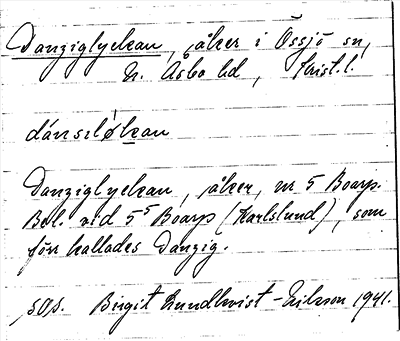 Danziglyckan, åker i Össjö sn,
N. Åsbo hd, Krist. l.
dánsılø̀kan
Danziglyckan, åker, nr 5 Boarp.
Bel. vid 5⁵ Boarp (Karlslund), som
förr kallades Danzig.
sOs. Birgit Lundkvist-Erikson 1941.